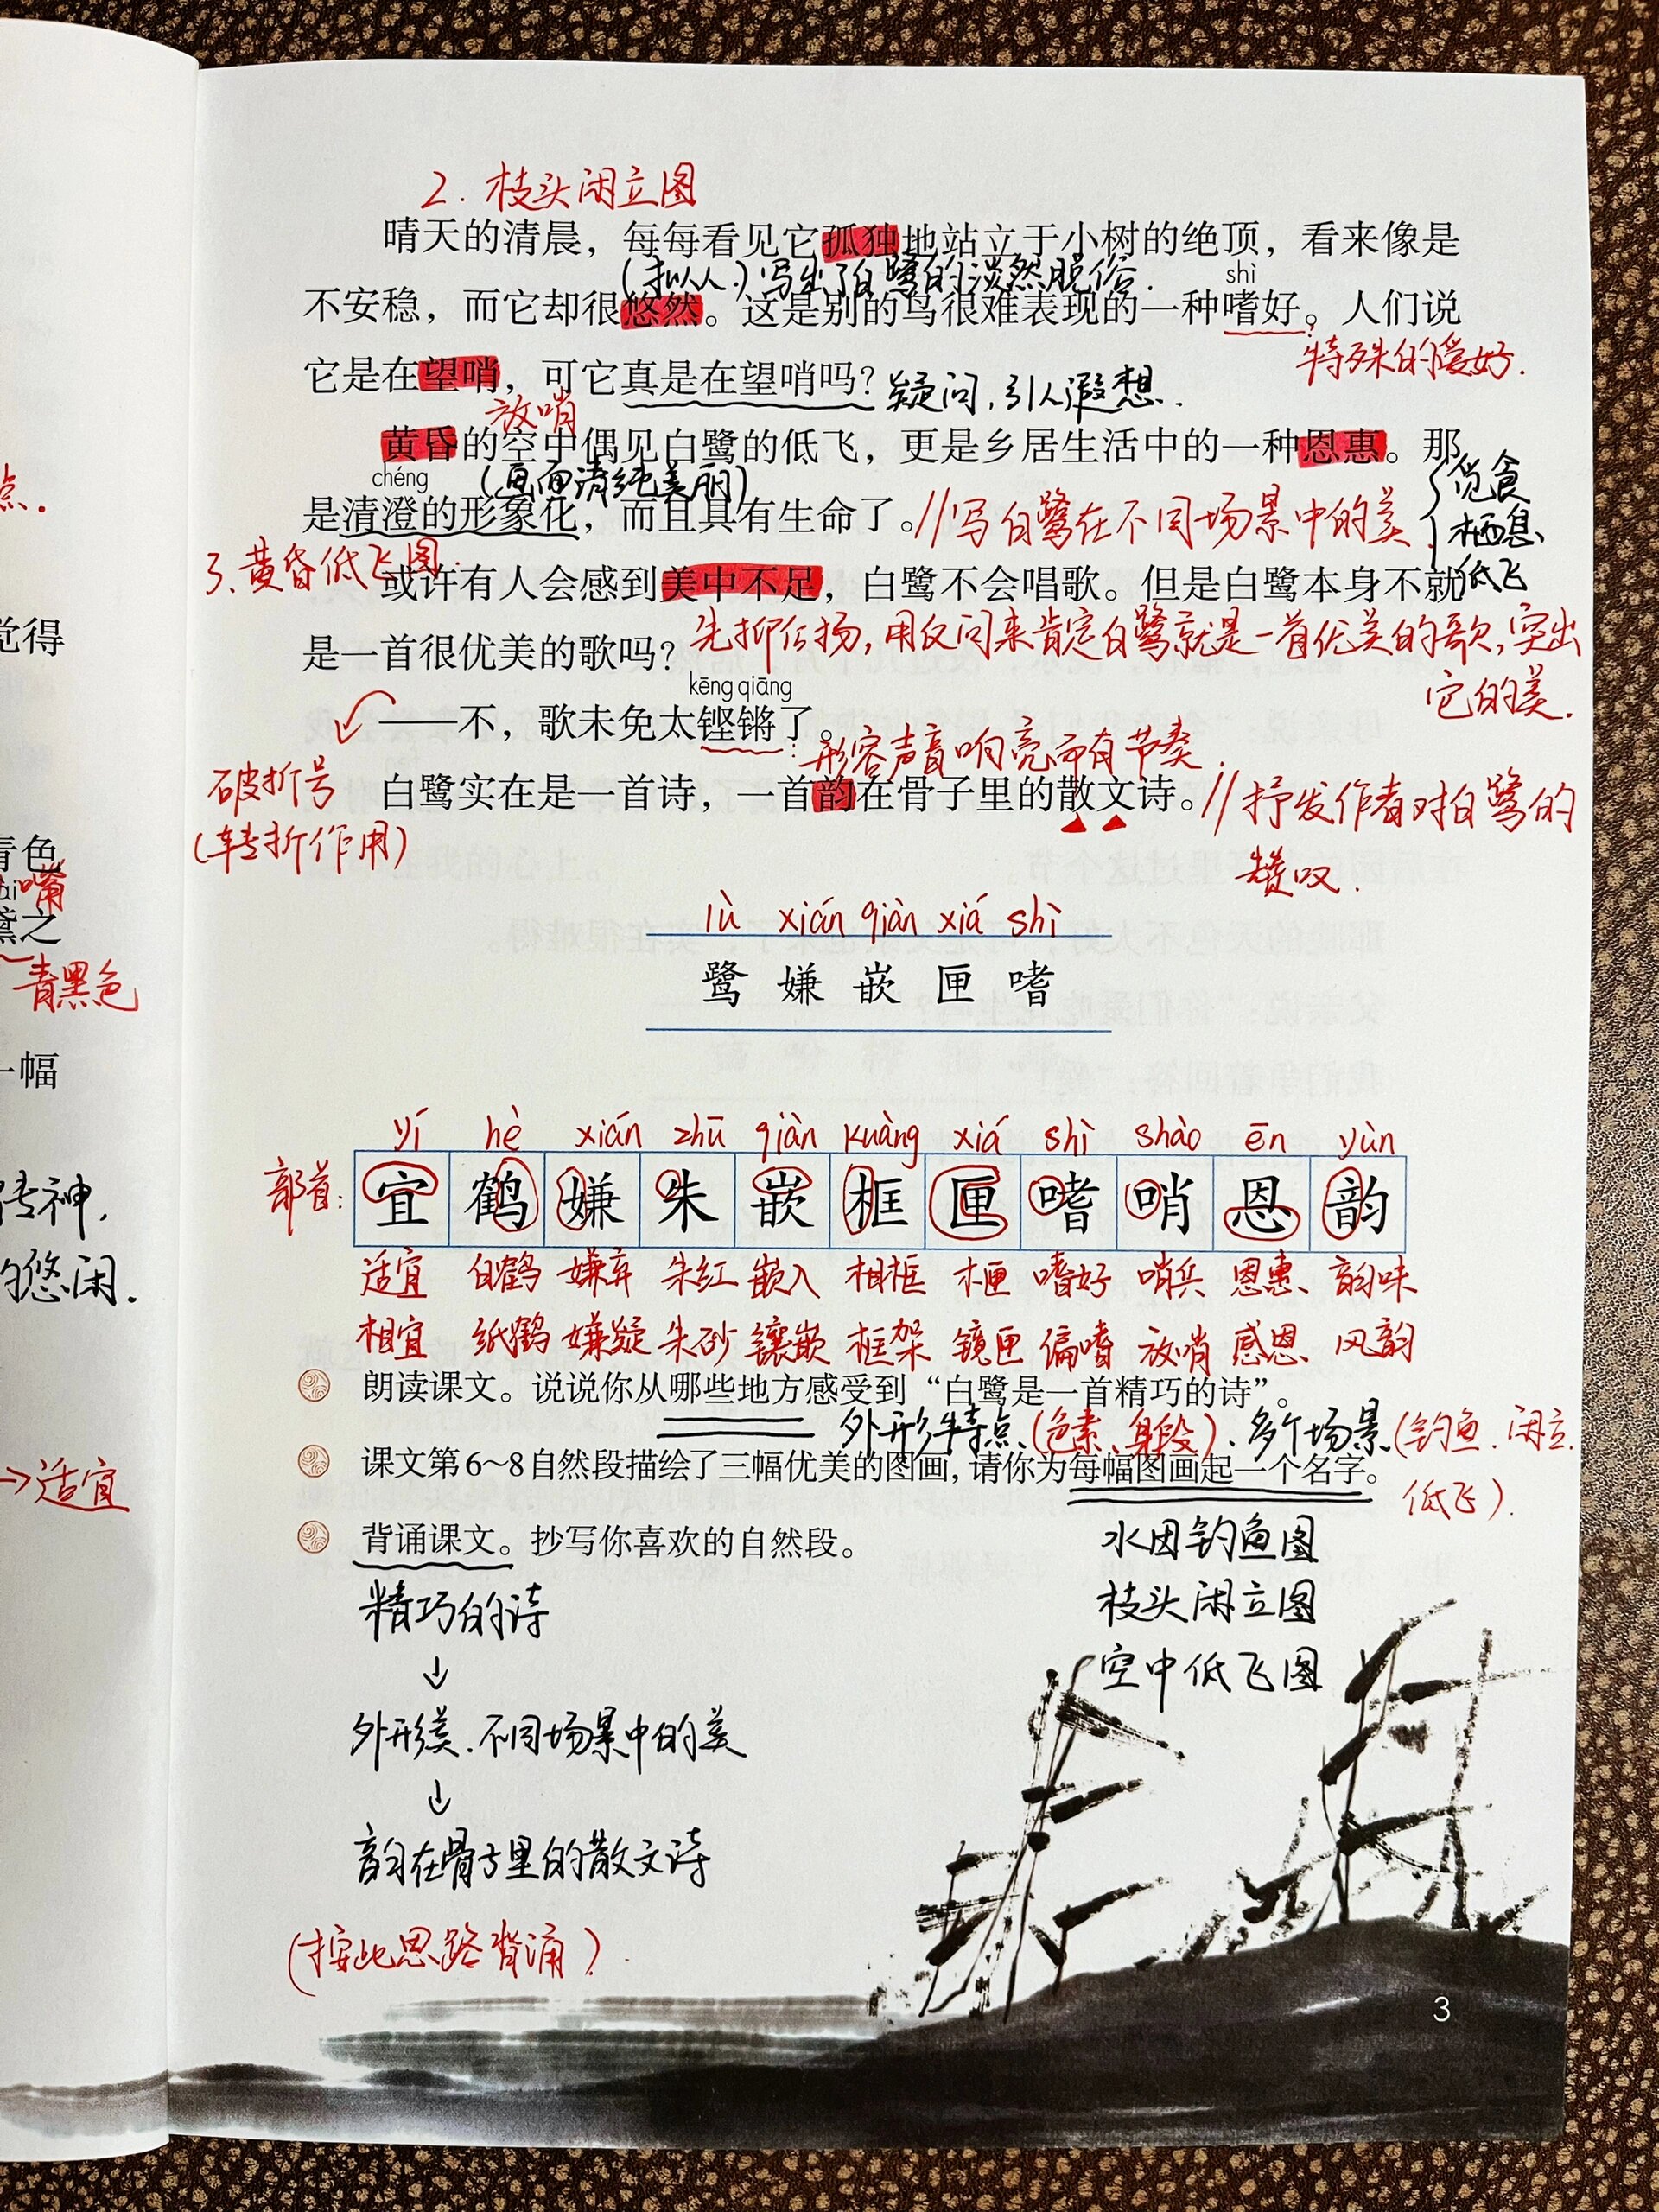 2. 枝头闲立图
晴天的清晨，每每看见它孤独地站立于小树的绝顶，看来像是
(拟人)写出了白鹭的淡然脱俗.
shì
不安稳，而它却很悠然。这是别的鸟很难表现的一种嗜好。人们说
特殊的爱好.
它是在望哨，可它真是在望哨吗？疑问,引人遐想.
放哨
黄昏的空中偶见白鹭的低飞，更是乡居生活中的一种恩惠。那
chéng
(画面清纯美丽)
觅食
栖息
低飞
是清澄的形象化，而且具有生命了。//写白鹭在不同场景中的美.
3.黄昏低飞图.
或许有人会感到美中不足，白鹭不会唱歌。但是白鹭本身不就
是一首很优美的歌吗？先抑后扬,用反问来肯定白鹭就是一首优美的歌,突出
它的美.
kēng qiāng
——不，歌未免太铿锵了。
:形容声音响亮而有节奏.
破折号
(转折作用)
白鹭实在是一首诗，一首韵在骨子里的散文诗。//抒发作者对白鹭的
赞叹.
lù xián qiàn xiá shì
鹭 嫌 嵌 匣 嗜
yí hè xián zhū qiàn kuàng xiá shì shào ēn yùn
部首: 宜 鹤 嫌 朱 嵌 框 匣 嗜 哨 恩 韵
适宜 白鹤 嫌弃 朱红 嵌入 相框 木匣 嗜好 哨兵 恩惠 韵味
相宜 纸鹤 嫌疑 朱砂 镶嵌 框架 镜匣 偏嗜 放哨 感恩 风韵
朗读课文。说说你从哪些地方感受到“白鹭是一首精巧的诗”。
外形特点(色素、身段)、多个场景(钓鱼.闲立.
低飞).
课文第6～8自然段描绘了三幅优美的图画，请你为每幅图画起一个名字。
背诵课文。抄写你喜欢的自然段。
水田钓鱼图
枝头闲立图
空中低飞图
精巧的诗
↓
外形美.不同场景中的美
↓
韵在骨子里的散文诗
(按此思路背诵).
3
点.
觉得
青色
嘴
黛之
青黑色
一幅
传神,
的悠闲.
→适宜